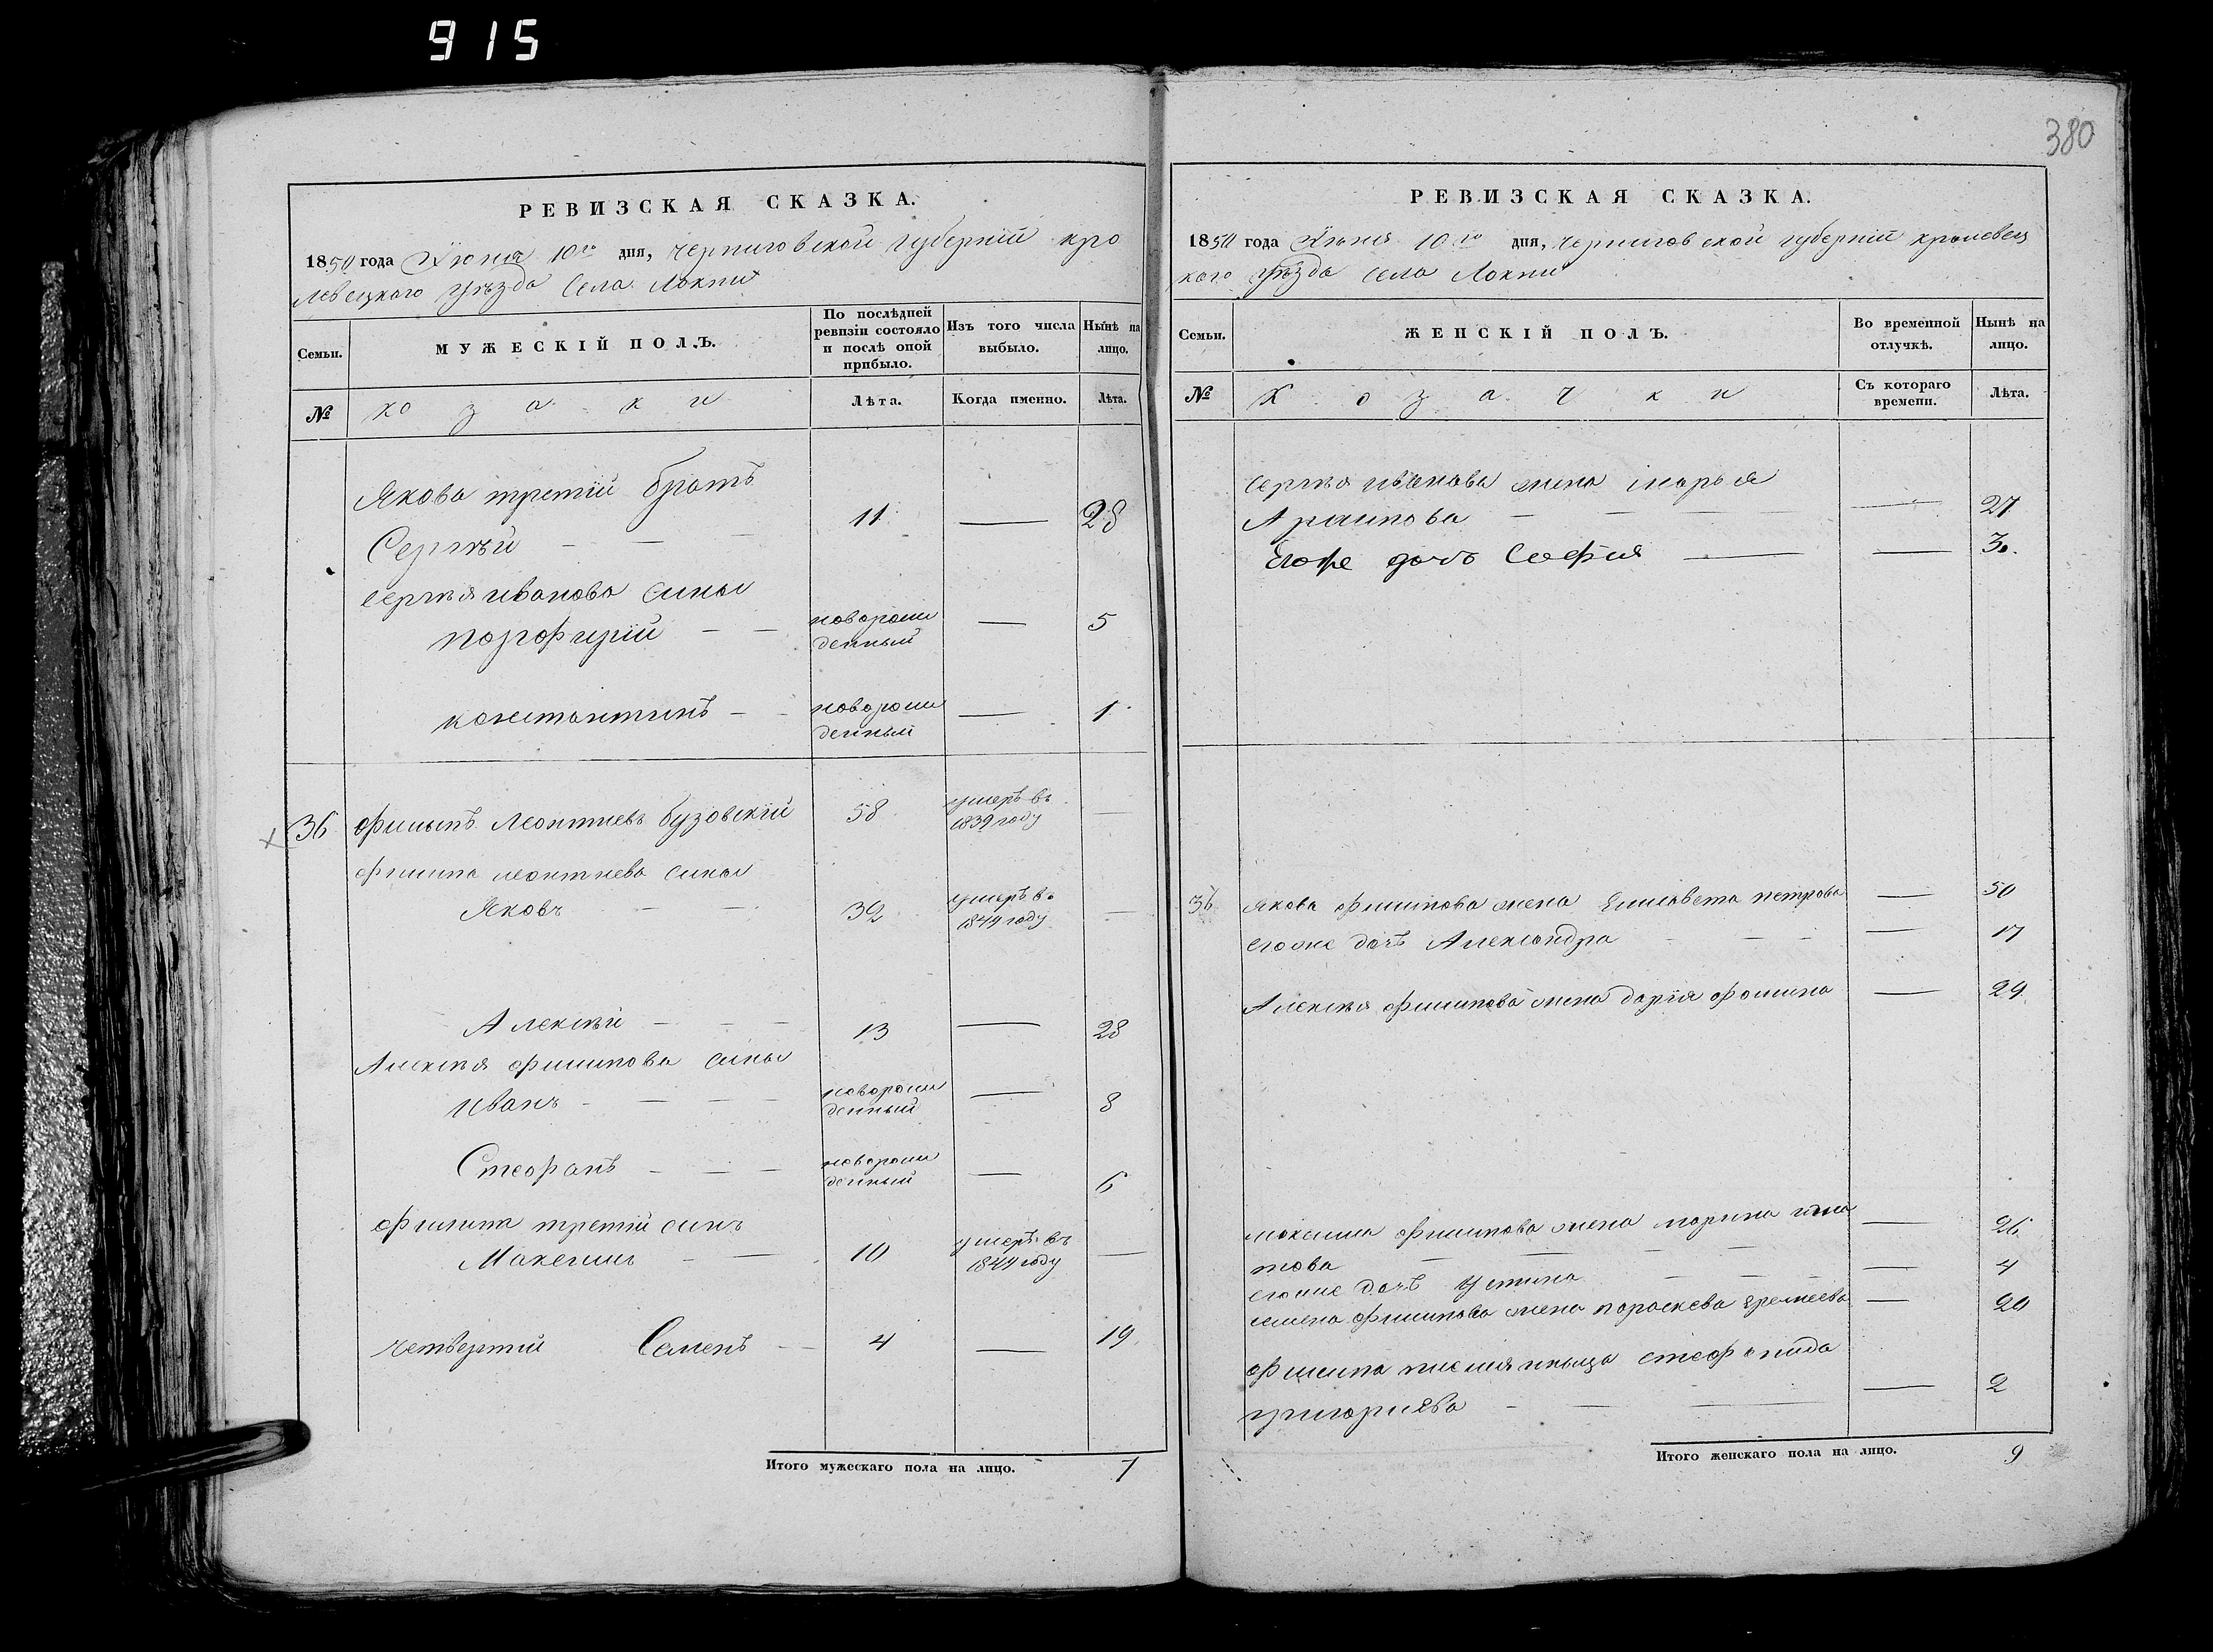 915
380
РЕВИЗСКАЯ СКАЗКА.
1850 года Іюня 10го дня, Черниговской губерніи кро
левецкого уѣзда села Локни
Семьи. МУЖЕСКІЙ ПОЛЪ. По послѣдней ревизіи состояло и послѣ оной прибыло. Изъ того числа выбыло. Нынѣ на лицо.
№ козаки Лѣта. Когда именно. Лѣта.
Якова третій братъ
Сергѣй — — — 11 — 28
Сергѣя иванова сины
порфирій — — новорож
денный — 5
константинъ — — новорож
денный — 1
36 филыпъ Леонтиевъ бузовскій 58 умеръ въ
1839 году —
филипа леонтиева сины
Яковъ — — 39 умеръ въ
1849 году —
Алексѣй — — — 13 — 28
Алексѣя филипова сины
иванъ — — — — новорож
денный — 8
Стефанъ — — — новорож
денный — 6
филипа третій синъ
Максимъ — — 10 умеръ въ
1849 году —
четвертій Семенъ — — 4 — 19
Итого мужескаго пола на лицо. 7
РЕВИЗСКАЯ СКАЗКА.
1850 года Іюня 10го дня, черниговской губерніи кролевец
кого уѣзда села Локни
Семьи. ЖЕНСКІЙ ПОЛЪ. Во временной отлучкѣ. Нынѣ на лицо.
№ козачки Съ котораго времени. Лѣта.
Сергѣя иванова жена марья
Архипова — — — — 27
Егоже дочь София — — 3.
36 якова филипова жена Елисавета петрова — 50
егоже дочь Александра — — — — 17
Алексѣя филипова жена дарія фомина — 29
максима филипова жена марина игна
това — — — — — 26
егоже дочь Устина — — — — 4
семена филипова жена параскева еремеева — 20
филипа стефанида
григориева — — — — 2
Итого женскаго пола на лицо. 9